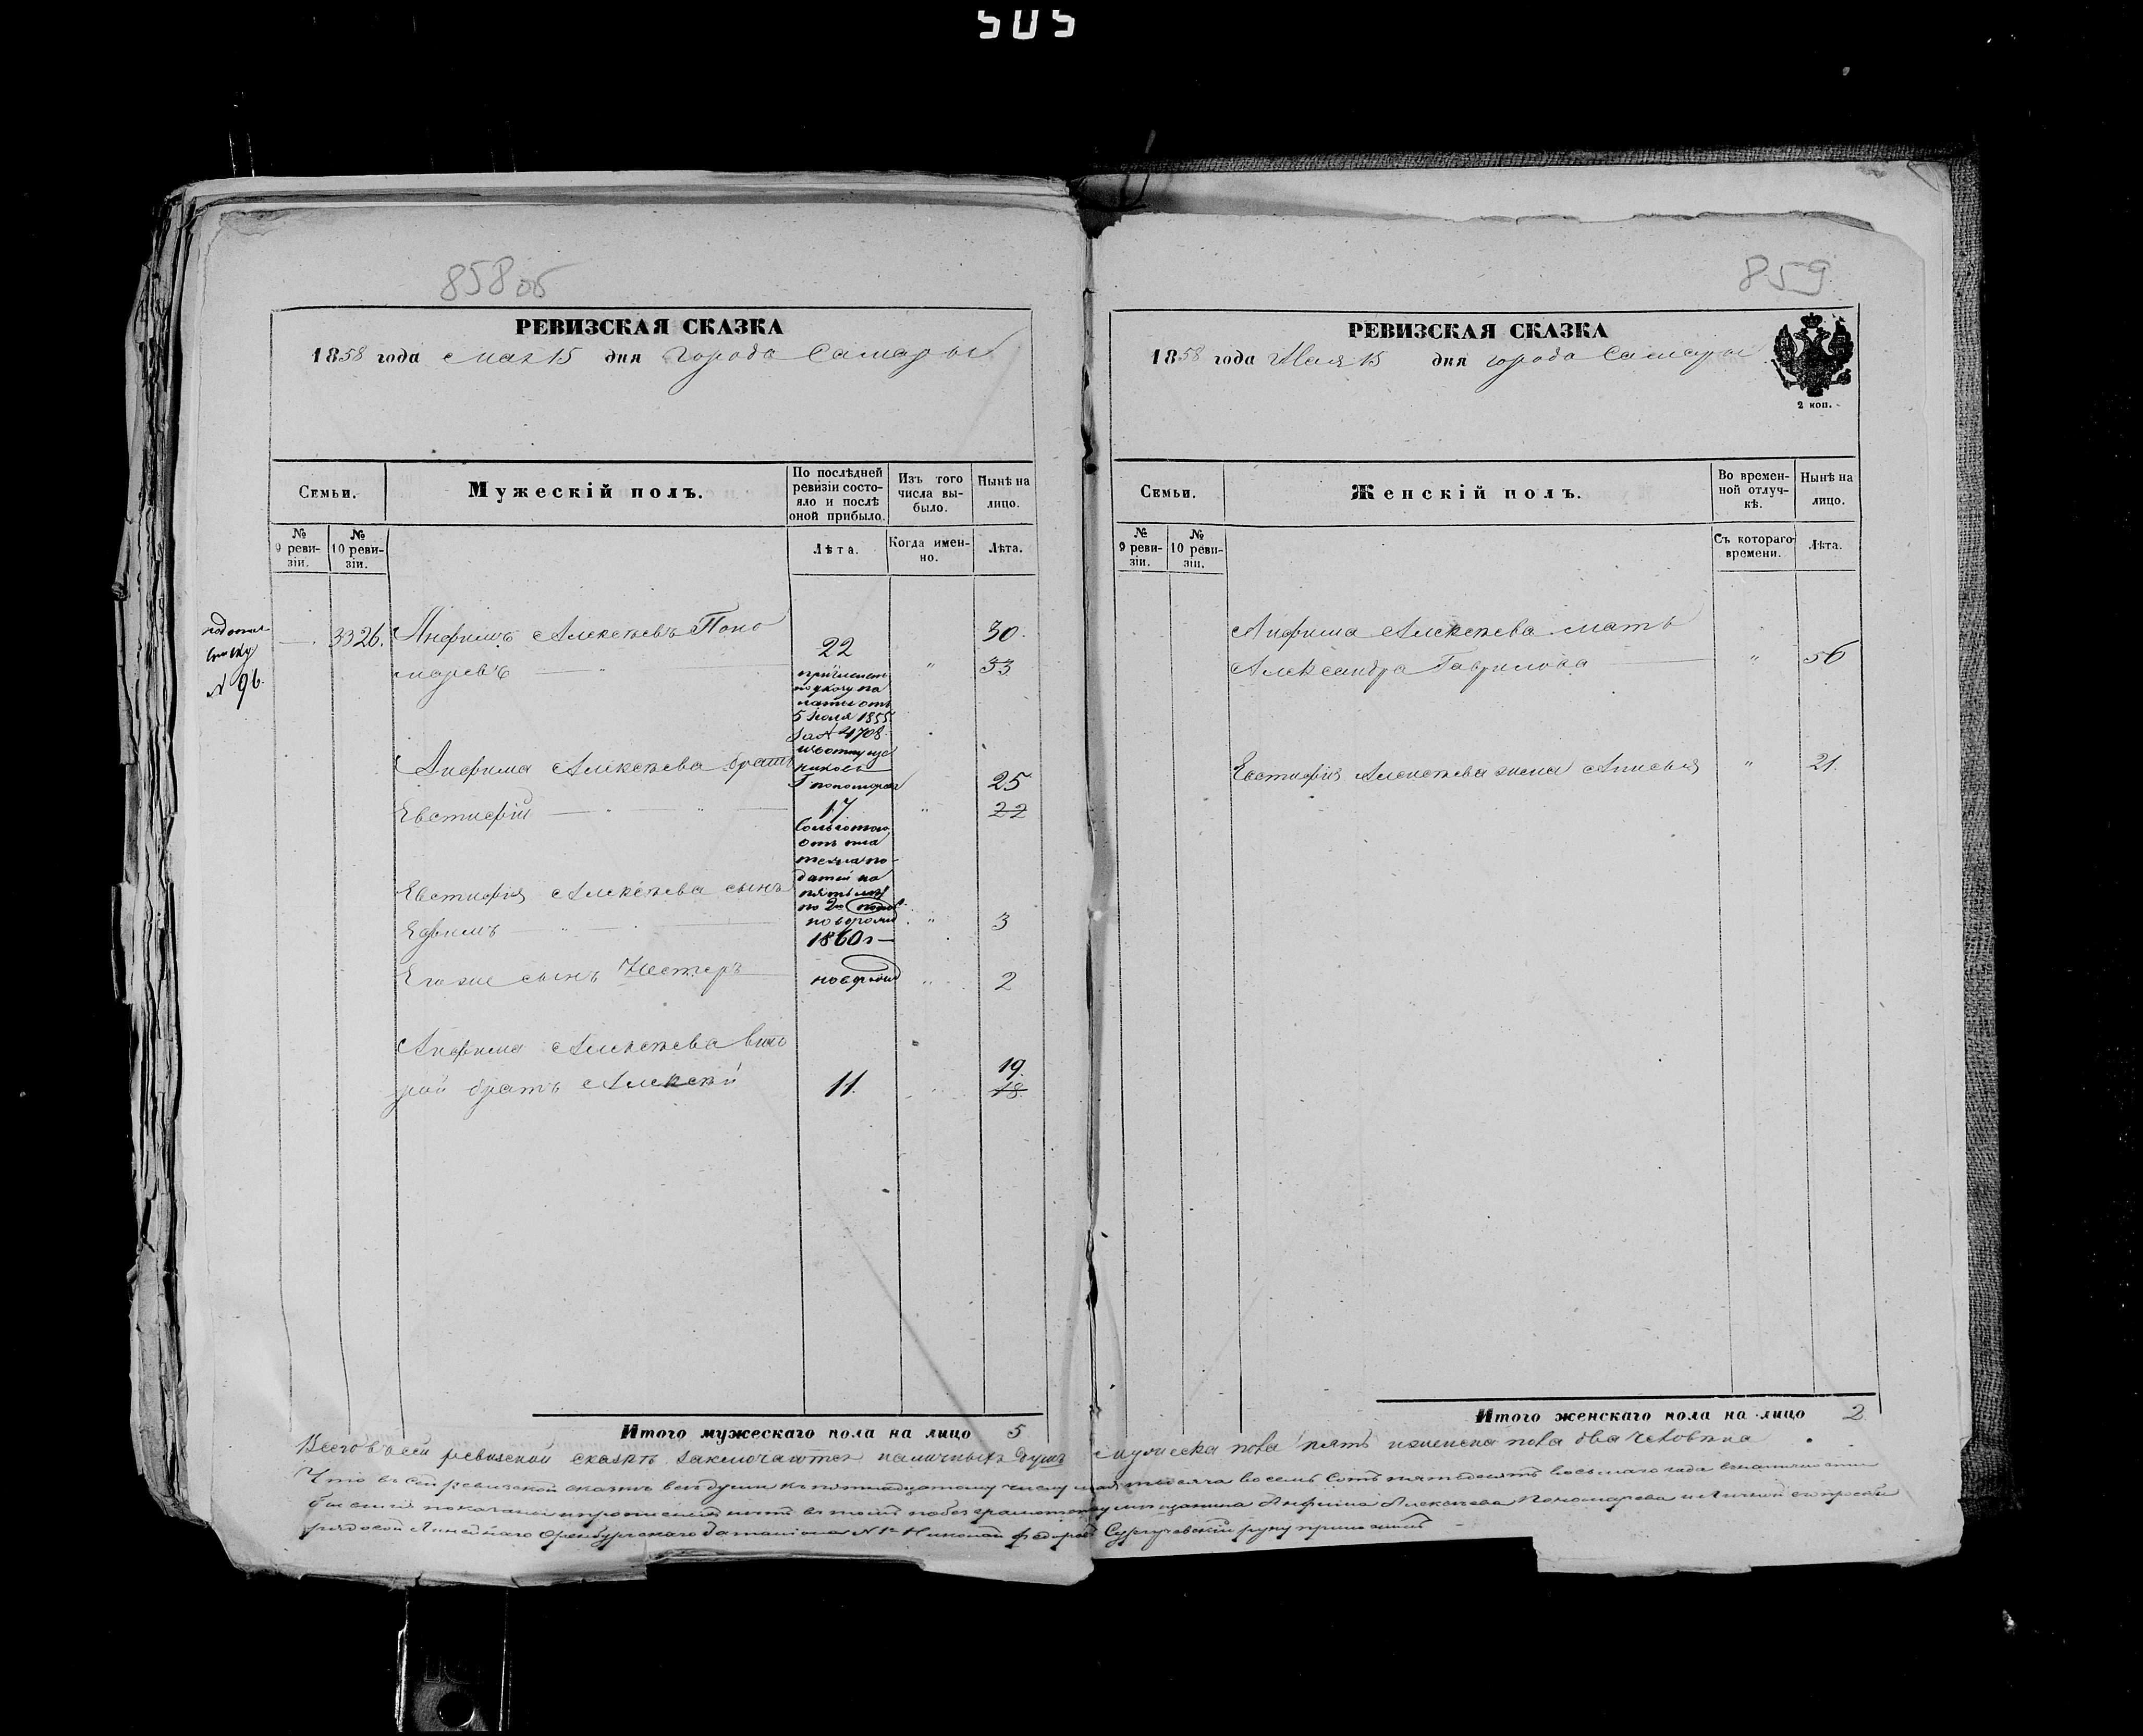 505
858 об
859
РЕВИЗСКАЯ СКАЗКА
1858 года мая 15 дня города Самары
Семьи.
Мужескій полъ.
По послѣдней ревизіи состо-
яло и послѣ оной прибыло.
Изъ того числа вы-
было.
Нынѣ на лицо.
№ 9 реви-
зіи.
№ 10 реви-
зіи.
Лѣта.
Когда имен-
но.
Лѣта.
№ 96.
3326. Анфимъ Алексѣевъ Поно
маревъ
22
30.
33
причислен
по указу па
латы отъ
5 Июля 1855
за № 4708
Анфима Алексѣева братъ
Евстифій
17
25
22
Евстифія Алексѣева сынъ
Ефимъ
3
1860 г
Его же сынъ Нестеръ
новорож
2
Анфима Алексѣева вто
рой братъ Алексѣй
11.
19.
18.
Итого мужескаго пола на лицо 5
РЕВИЗСКАЯ СКАЗКА
1858 года Мая 15 дня города Самары
2 коп.
Семьи.
Женскій полъ.
Во времен-
ной отлуч-
кѣ.
Нынѣ на
лицо.
№ 9 реви-
зіи.
№ 10 реви-
зіи.
Съ котораго
времени.
Лѣта.
Анфима Алексѣева мать
Александра Гаврилова
56
Евстифія Алексѣева жена Анисья
21.
Итого женскаго пола на лицо 2
Всего въ сей ревизской сказкѣ заключается наличныхъ душъ мужеска пола пять и женска пола два человѣка
Что въ сей ревизской сказкѣ всѣ души къ пятнадцатому числу мая тысяча восемь сотъ пятьдесятъ восьмаго года
мѣщанина Анфима Алексѣева Пономарева
рядовой Линейнаго Оренбургскаго баталіона № 1 Николай Федоровъ руку приложилъ